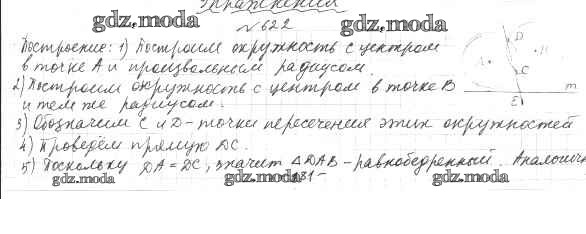 Упражнения
gdz.moda №622 gdz.moda
Построение: 1) Построим окружность с центром
в точке A и произвольным радиусом.
2) Построим окружность с центром в точке B
и тем же радиусом.
3) Обозначим C и D - точки пересечения этих окружностей
4) Проведём прямую DC.
5) Поскольку DA = DC, значит △DAB - равнобедренный. Аналогичн
gdz.moda gdz.moda gdz.moda
A
D
B
C
m
E